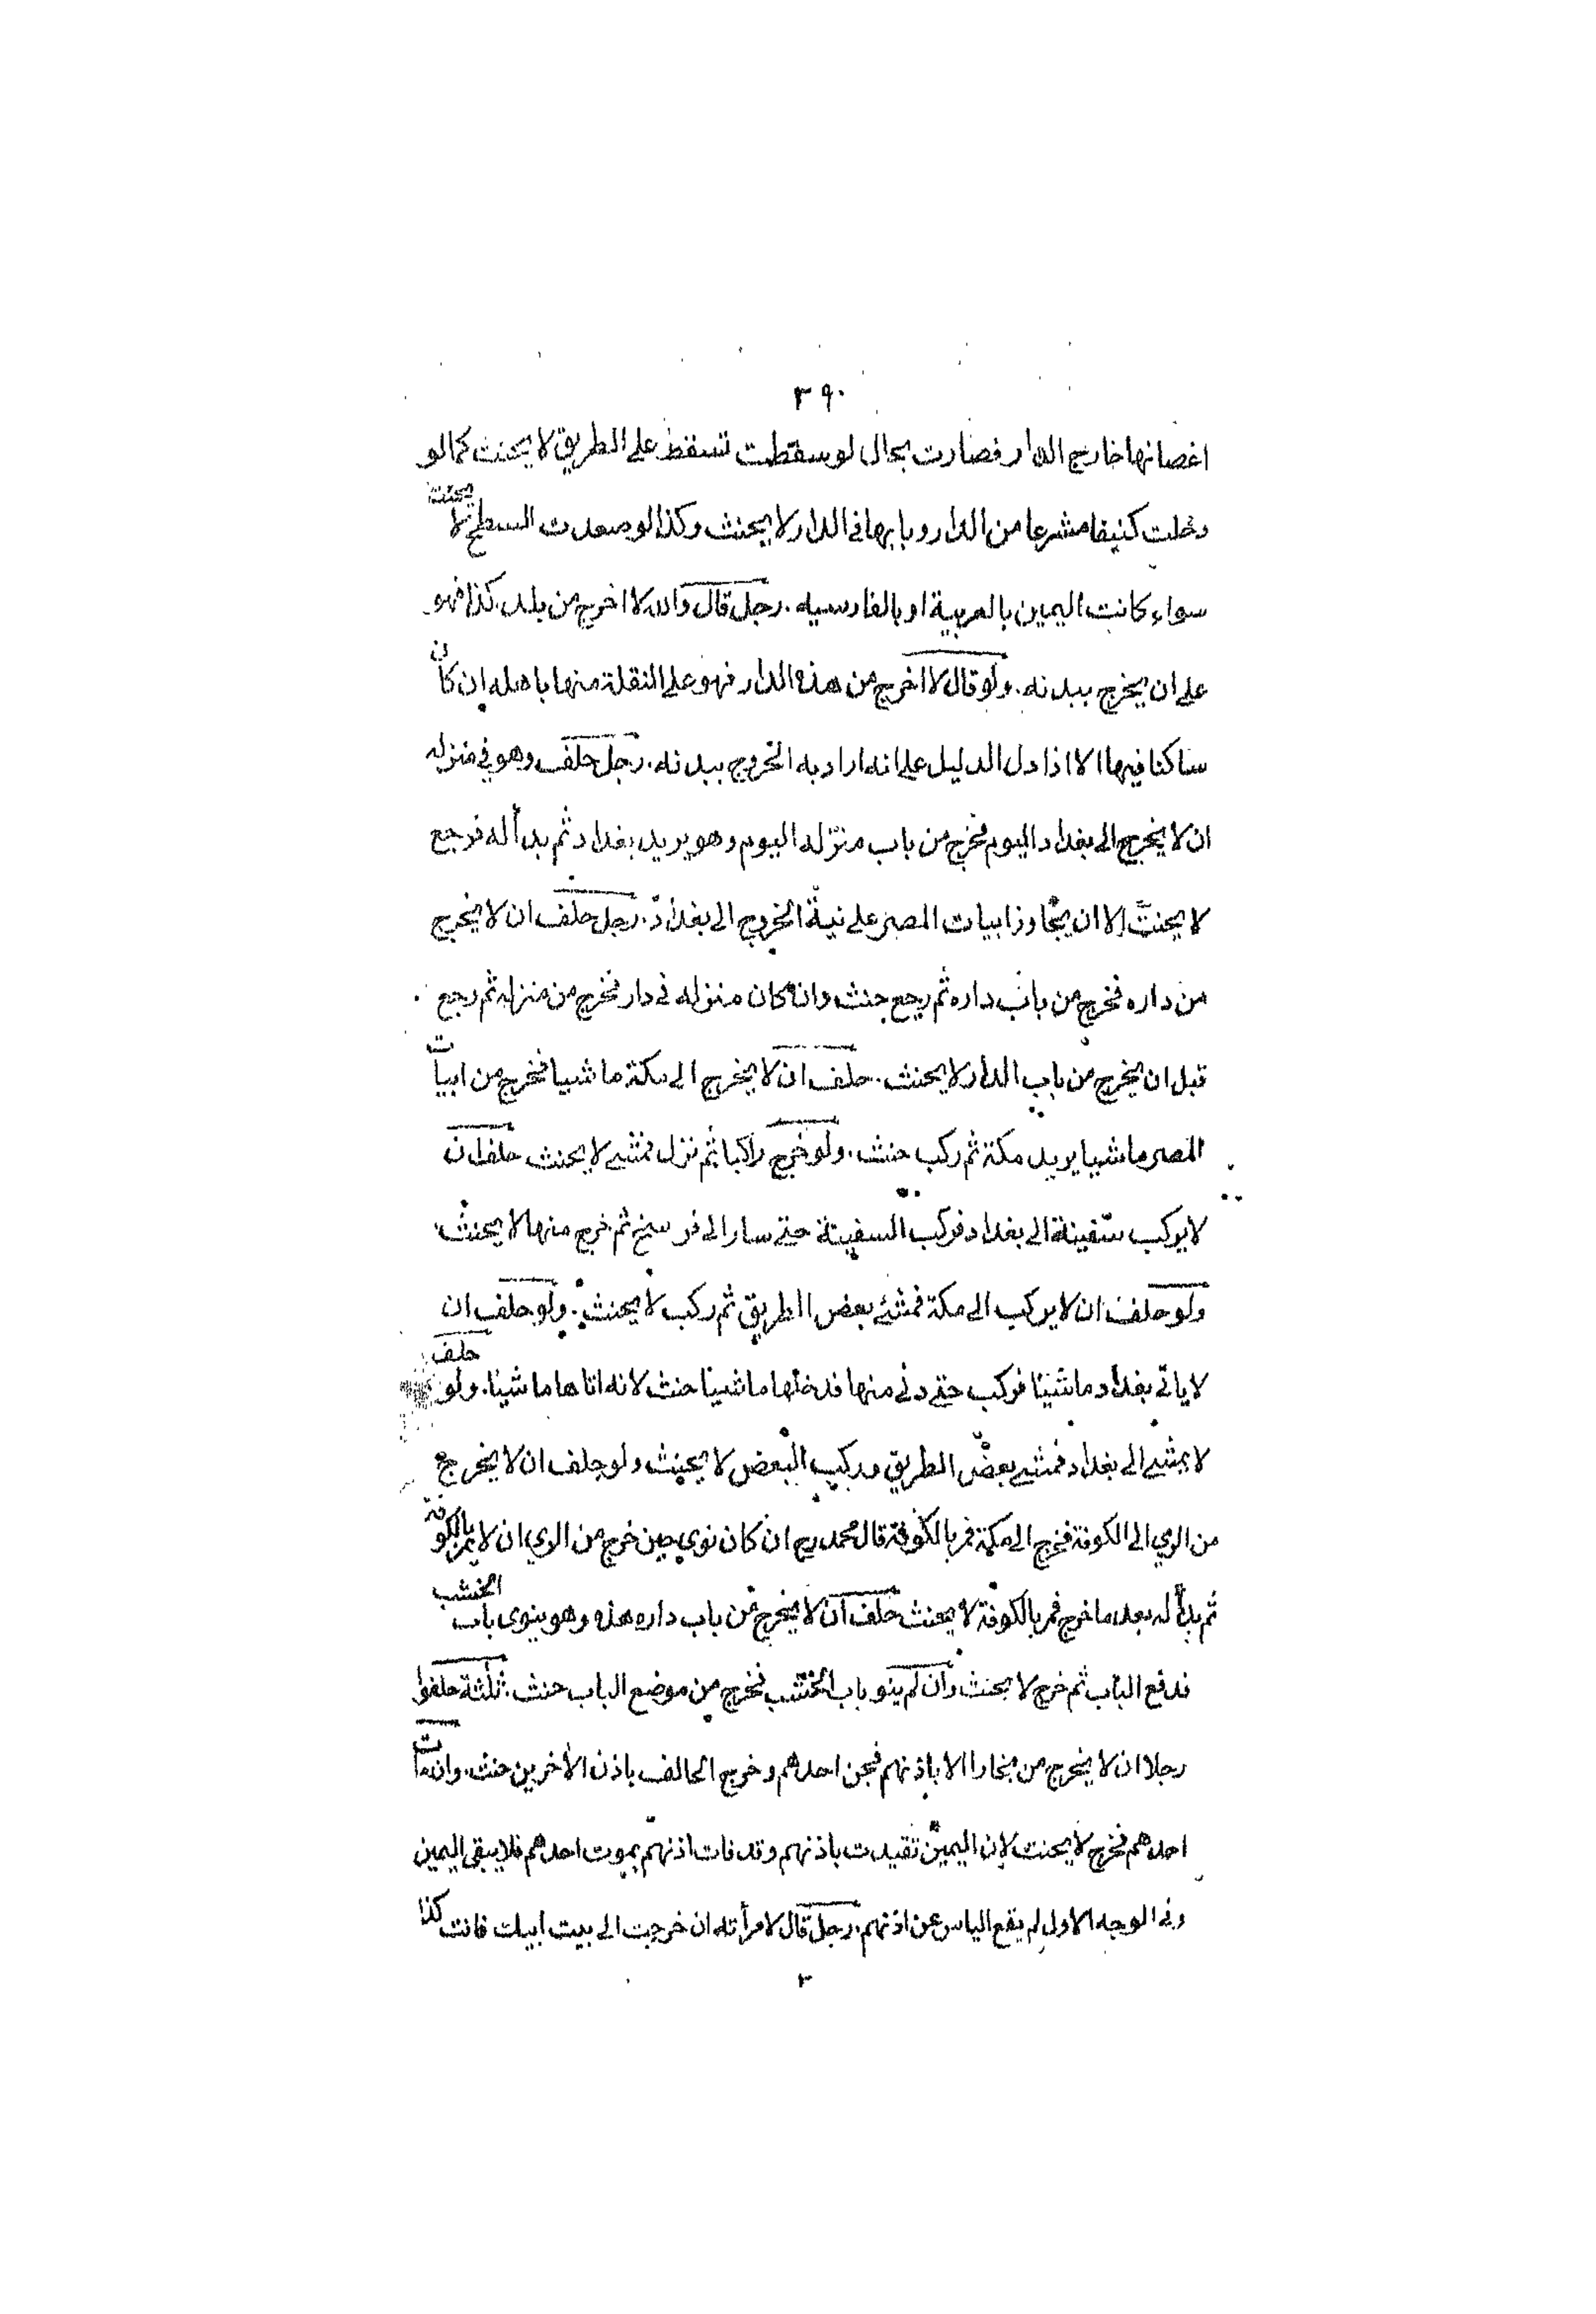 ٣٩٠
اغصانها خارج الدار فصارت بحال لو سقطت تسقط على الطريق لا يحنث كما لو
دخلت كنيفا مشرعا من الدار وبابها في الدار لا يحنث وكذا لو صعدت السطح لا يحنث
سواء كانت اليمين بالعربية او بالفارسيه . رجل قال والله لا اخرج من بلد كذا فهو
على ان يخرج ببدنه . ولو قال لا اخرج من هذه الدار فهو على النقلة منها باهله ان كان
ساكنا فيها الا اذا دل الدليل على انه اراد به الخروج ببدنه . رجل حلف وهو في منزله
ان لا يخرج الى بغداد اليوم فخرج من باب منزله اليوم وهو يريد بغداد ثم بدأ له فرجع
لا يحنث الا ان يجاوز ابيات المصر على نية الخروج الى بغداد . رجل حلف ان لا يخرج
من داره فخرج من باب داره ثم رجع حنث وان كان منزله في دار فخرج من منزله ثم رجع
قبل ان يخرج من باب الدار لا يحنث . حلف ان لا يخرج الى مكة ماشيا فخرج من ابيات
المصر ماشيا يريد مكة ثم ركب حنث . ولو خرج راكبا ثم نزل فمشى لا يحنث حلف ان
لا يركب سفينة الى بغداد فركب السفينة حتى سار الى فرسخ ثم خرج منها لا يحنث
ولو حلف ان لا يركب الى مكة فمشى بعض الطريق ثم ركب لا يحنث . ولو حلف ان
لا ياتى بغداد ماشيا فركب حتى دنى منها فدخلها ماشيا حنث لانه اتاها ماشيا . ولو حلف
لا يمشى الى بغداد فمشى بعض الطريق وركب البعض لا يحنث ولو حلف ان لا يخرج
من الري الى الكوفة فخرج الى مكة فمر بالكوفة قال محمد رح ان كان نوى حين خرج من الري ان لا يمر بالكوفة
ثم بدأ له بعد ما خرج فمر بالكوفة لا يحنث حلف ان لا يخرج من باب داره هذه وهو ينوى باب الخشب
فدفع الباب ثم خرج لا يحنث وان لم ينو باب الخشب فخرج من موضع الباب حنث . ثلثة حلفوا
رجلا ان لا يخرج من بخارا الا باذنهم فجن احدهم وخرج الحالف باذن الاخرين حنث . وان مات
احدهم فخرج لا يحنث لان اليمين تقيدت باذنهم وقد فات اذنهم بموت احدهم فلا يبقى اليمين
وفى الوجه الاول لم يقع الياس عن اذنهم . رجل قال لامرأته ان خرجت الى بيت ابيك فانت كذا
٣